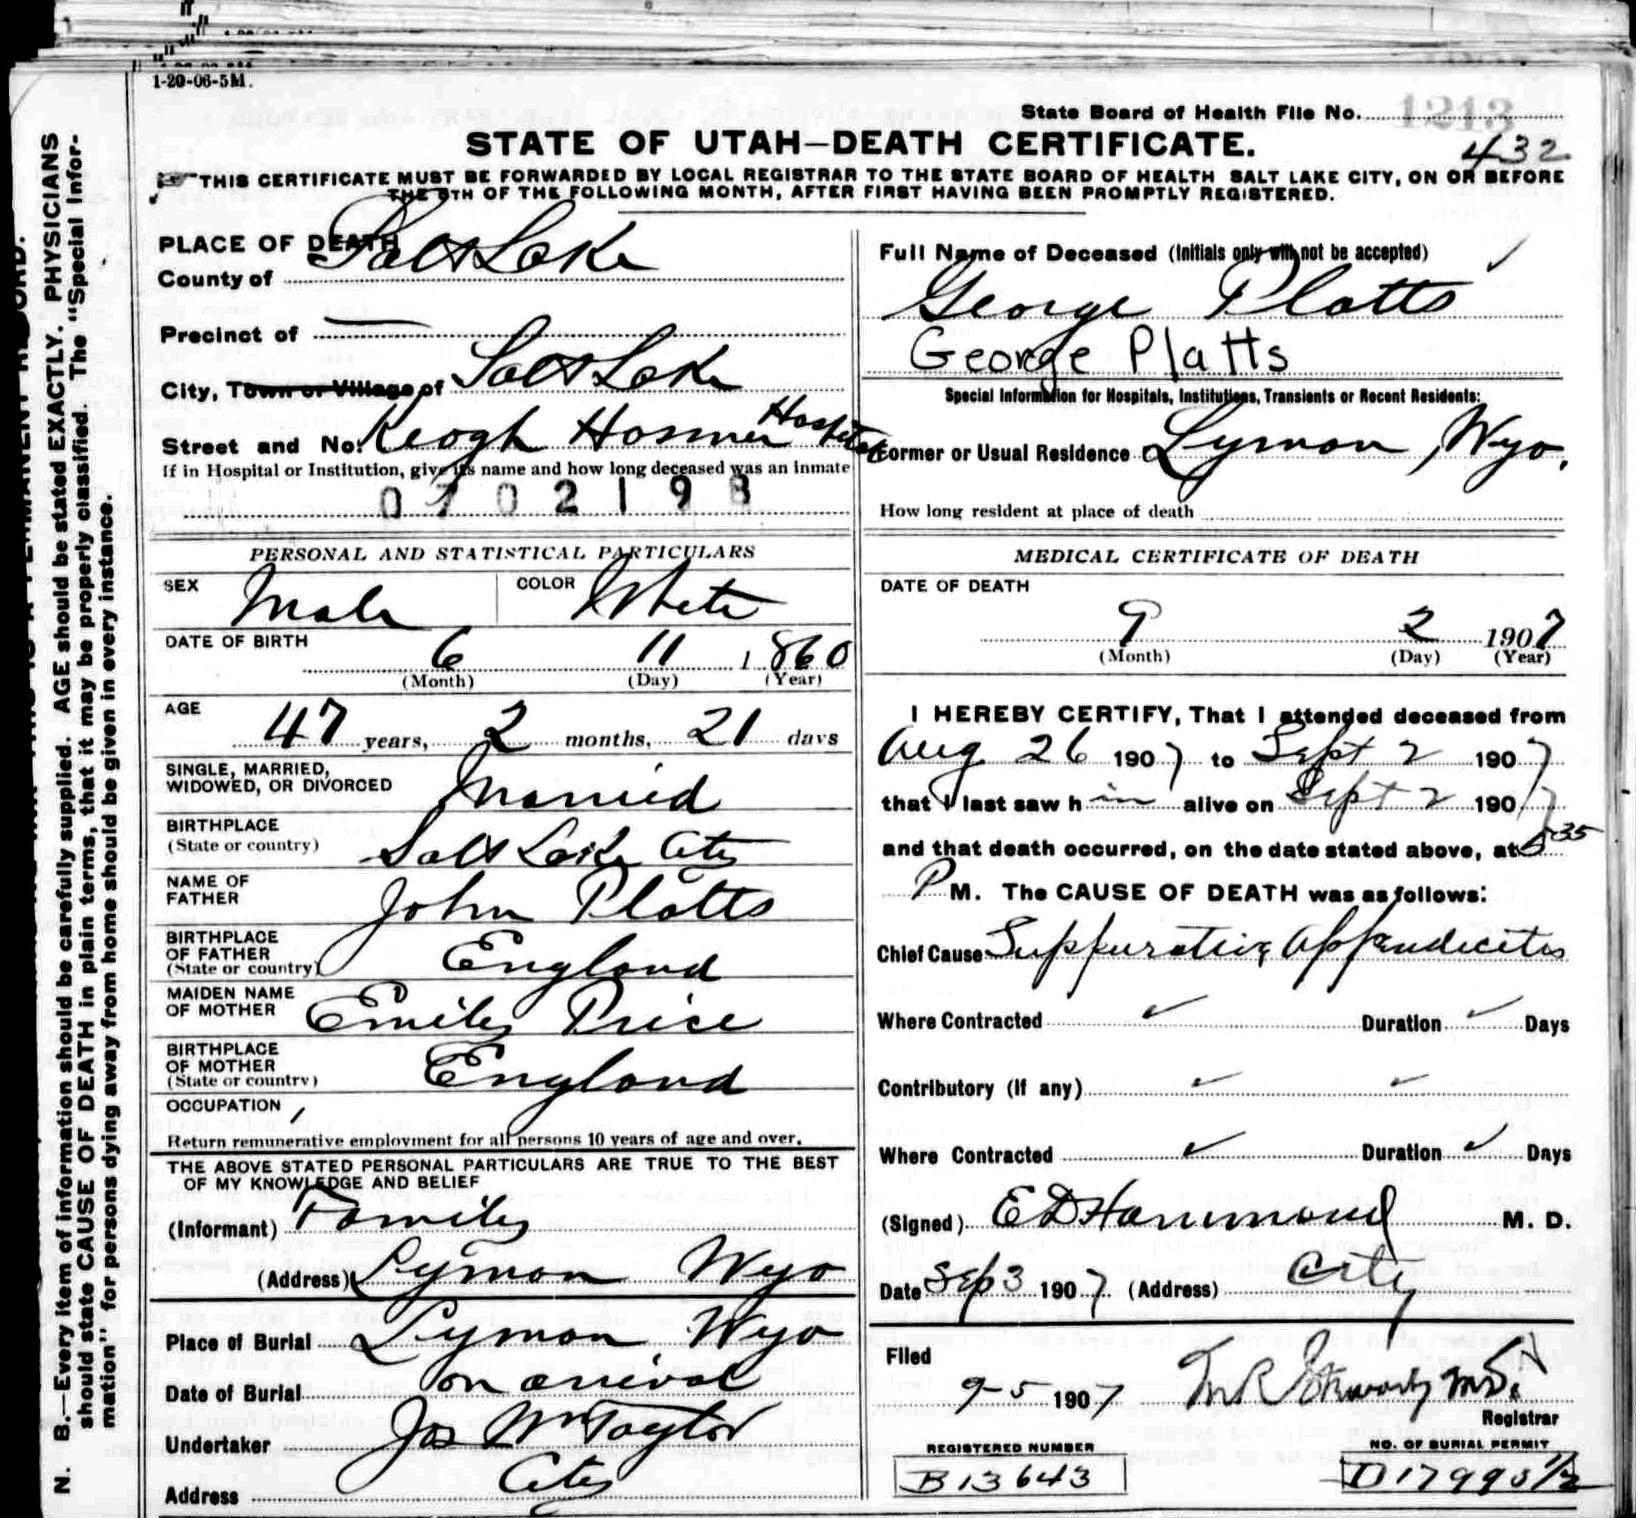 1-20-06-5M.
State Board of Health File No. 1213
STATE OF UTAH—DEATH CERTIFICATE.
432
THIS CERTIFICATE MUST BE FORWARDED BY LOCAL REGISTRAR TO THE STATE BOARD OF HEALTH SALT LAKE CITY, ON OR BEFORE
THE 5TH OF THE FOLLOWING MONTH, AFTER FIRST HAVING BEEN PROMPTLY REGISTERED.
PLACE OF DEATH
County of Salt Lake
Precinct of —
City, Town or Village of Salt Lake
Street and No. Keogh Hosmer Hospital
If in Hospital or Institution, give its name and how long deceased was an inmate
0702193
PERSONAL AND STATISTICAL PARTICULARS
SEX Male COLOR White
DATE OF BIRTH
6 11 1860
(Month) (Day) (Year)
AGE
47 years, 2 months, 21 days
SINGLE, MARRIED,
WIDOWED, OR DIVORCED Married
BIRTHPLACE
(State or country) Salt Lake City
NAME OF
FATHER John Platts
BIRTHPLACE
OF FATHER
(State or country) England
MAIDEN NAME
OF MOTHER Emily Price
BIRTHPLACE
OF MOTHER
(State or country) England
OCCUPATION
Return remunerative employment for all persons 10 years of age and over.
THE ABOVE STATED PERSONAL PARTICULARS ARE TRUE TO THE BEST
OF MY KNOWLEDGE AND BELIEF
(Informant) Family
(Address) Lyman Wyo
Place of Burial Lyman Wyo
Date of Burial On arrival
Undertaker Jos Wm Taylor
Address City
Full Name of Deceased (Initials only will not be accepted)
George Platts
George Platts
Special Information for Hospitals, Institutions, Transients or Recent Residents:
Former or Usual Residence Lyman, Wyo.
How long resident at place of death
MEDICAL CERTIFICATE OF DEATH
DATE OF DEATH
9 2 1907
(Month) (Day) (Year)
I HEREBY CERTIFY, That I attended deceased from
Aug 26 1907 to Sept 2 1907
that I last saw him alive on Sept 2 1907
and that death occurred, on the date stated above, at 5 35
P M. The CAUSE OF DEATH was as follows:
Chief Cause Suppurative Appendicitis
Where Contracted Duration Days
Contributory (if any)
Where Contracted Duration Days
(Signed) E D Hammond M. D.
Date Sep 3 1907. (Address) City
Filed
9-5 1907
Registrar
REGISTERED NUMBER
B13643
NO. OF BURIAL PERMIT
D17993 1/2
N. B.—Every item of information should be carefully supplied. AGE should be stated EXACTLY. PHYSICIANS
should state CAUSE OF DEATH in plain terms, that it may be properly classified. The "Special Infor-
mation" for persons dying away from home should be given in every instance.